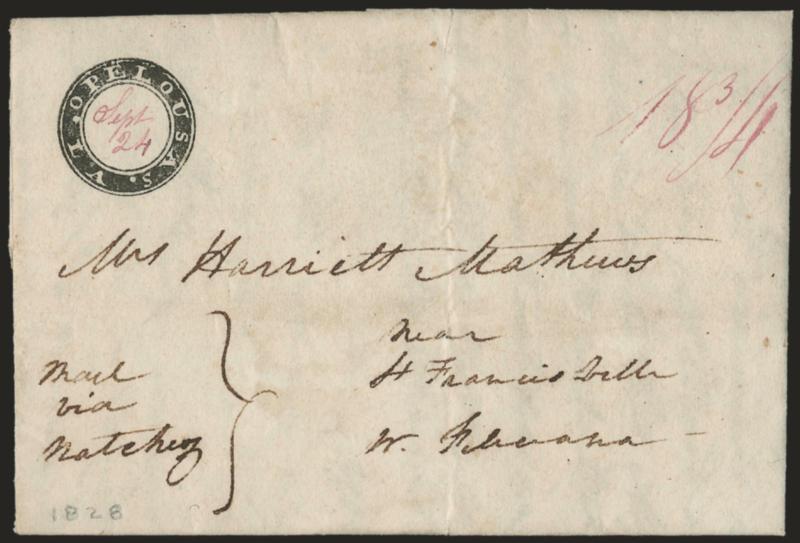 OPELOUSAS. LA.
Sept
24
18 3/4
Mrs Harriett Mathews
near
St Francis Ville
W. Feliciana
Mail
via
Natchez
1828